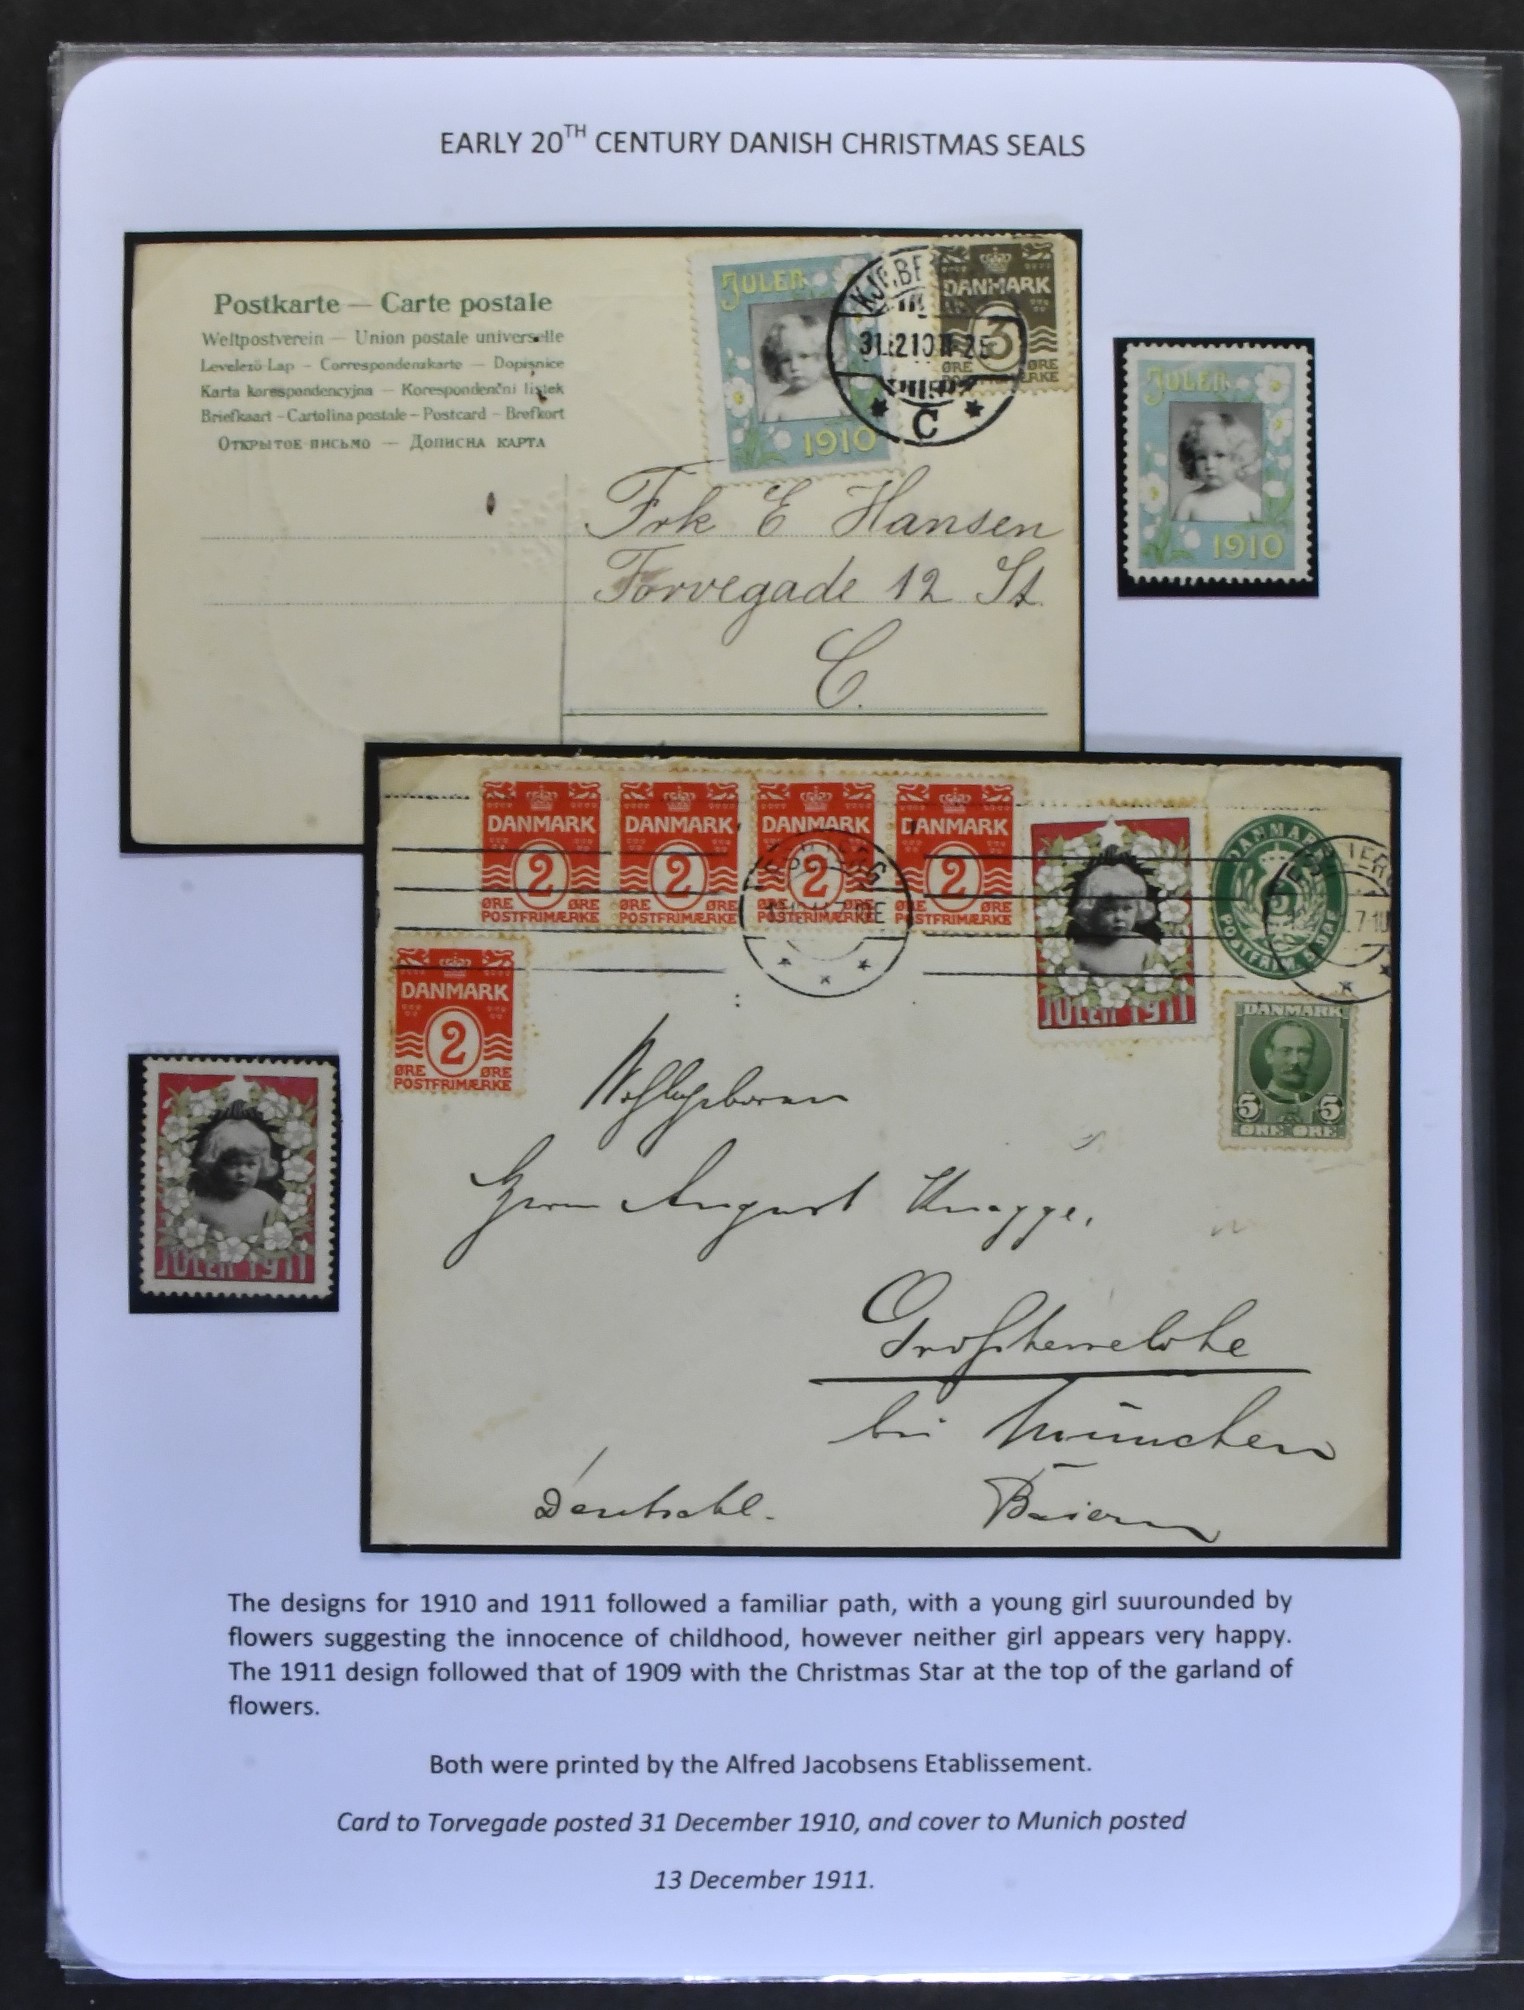 EARLY 20TH CENTURY DANISH CHRISTMAS SEALS
Postkarte — Carte postale
Weltpostverein — Union postale universelle
Levelező-Lap – Correspondenzkarte – Dopisnice
Karta korespondencyjna – Korespondenční lístek
Briefkaart – Cartolina postale – Postcard – Brefkort
Открытое письмо — Дописна карта
JULEN
1910
DANMARK
3
ØRE ØRE
C
Frk E Hansen
Torvegade 12 St
C.
JULEN
1910
DANMARK
2
ØRE ØRE
POSTFRIMÆRKE
DANMARK
2
ØRE ØRE
POSTFRIMÆRKE
DANMARK
2
ØRE ØRE
POSTFRIMÆRKE
DANMARK
2
ØRE ØRE
POSTFRIMÆRKE
JULEN 1911
DANMARK
DANMARK
2
ØRE ØRE
POSTFRIMÆRKE
DANMARK
5 5
ØRE ØRE
JULEN 1911
Herrn August Knagge,
Großhesselohe
bei München
Deutschl. Baiern
The designs for 1910 and 1911 followed a familiar path, with a young girl suurounded by
flowers suggesting the innocence of childhood, however neither girl appears very happy.
The 1911 design followed that of 1909 with the Christmas Star at the top of the garland of
flowers.
Both were printed by the Alfred Jacobsens Etablissement.
Card to Torvegade posted 31 December 1910, and cover to Munich posted
13 December 1911.